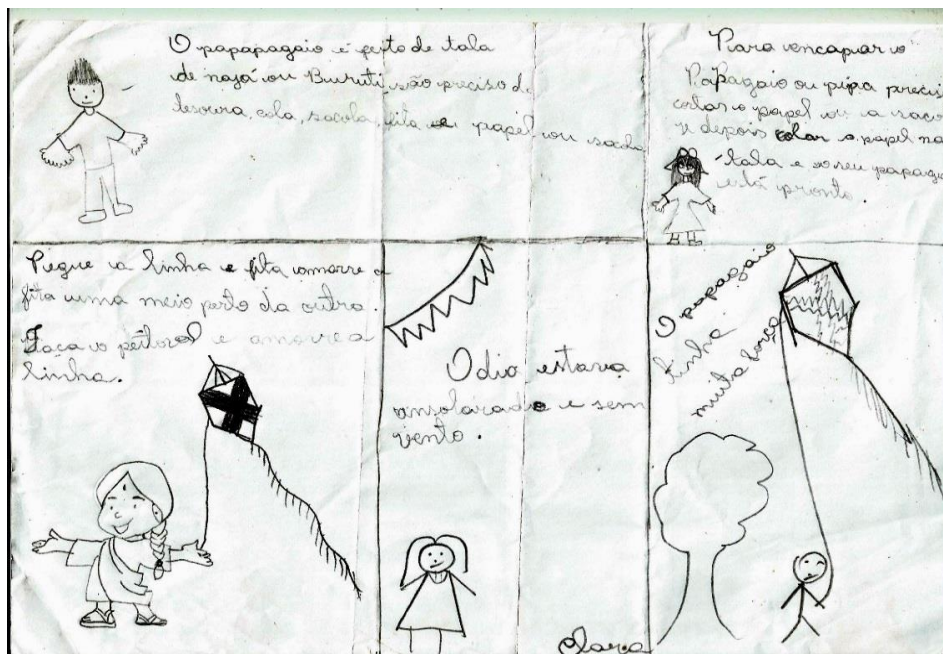 O papapagaio é feito de tala
de najá ou Buruti, são preciso de
tesoura, cola, sacola, fita ou papel ou sacola
Para encapar o
Papagaio ou pipa precisa
cortar o papel ou a saco
e depois colar o papel na
tala e o seu papagaio
está pronto.
Pegue a linha e fita amarre a
fita uma meio perto da outra.
Faça o peitoral e amarre a
linha.
O dia estava
ensolarado e sem
vento.
O papagaio
tinha
muita força
Clara